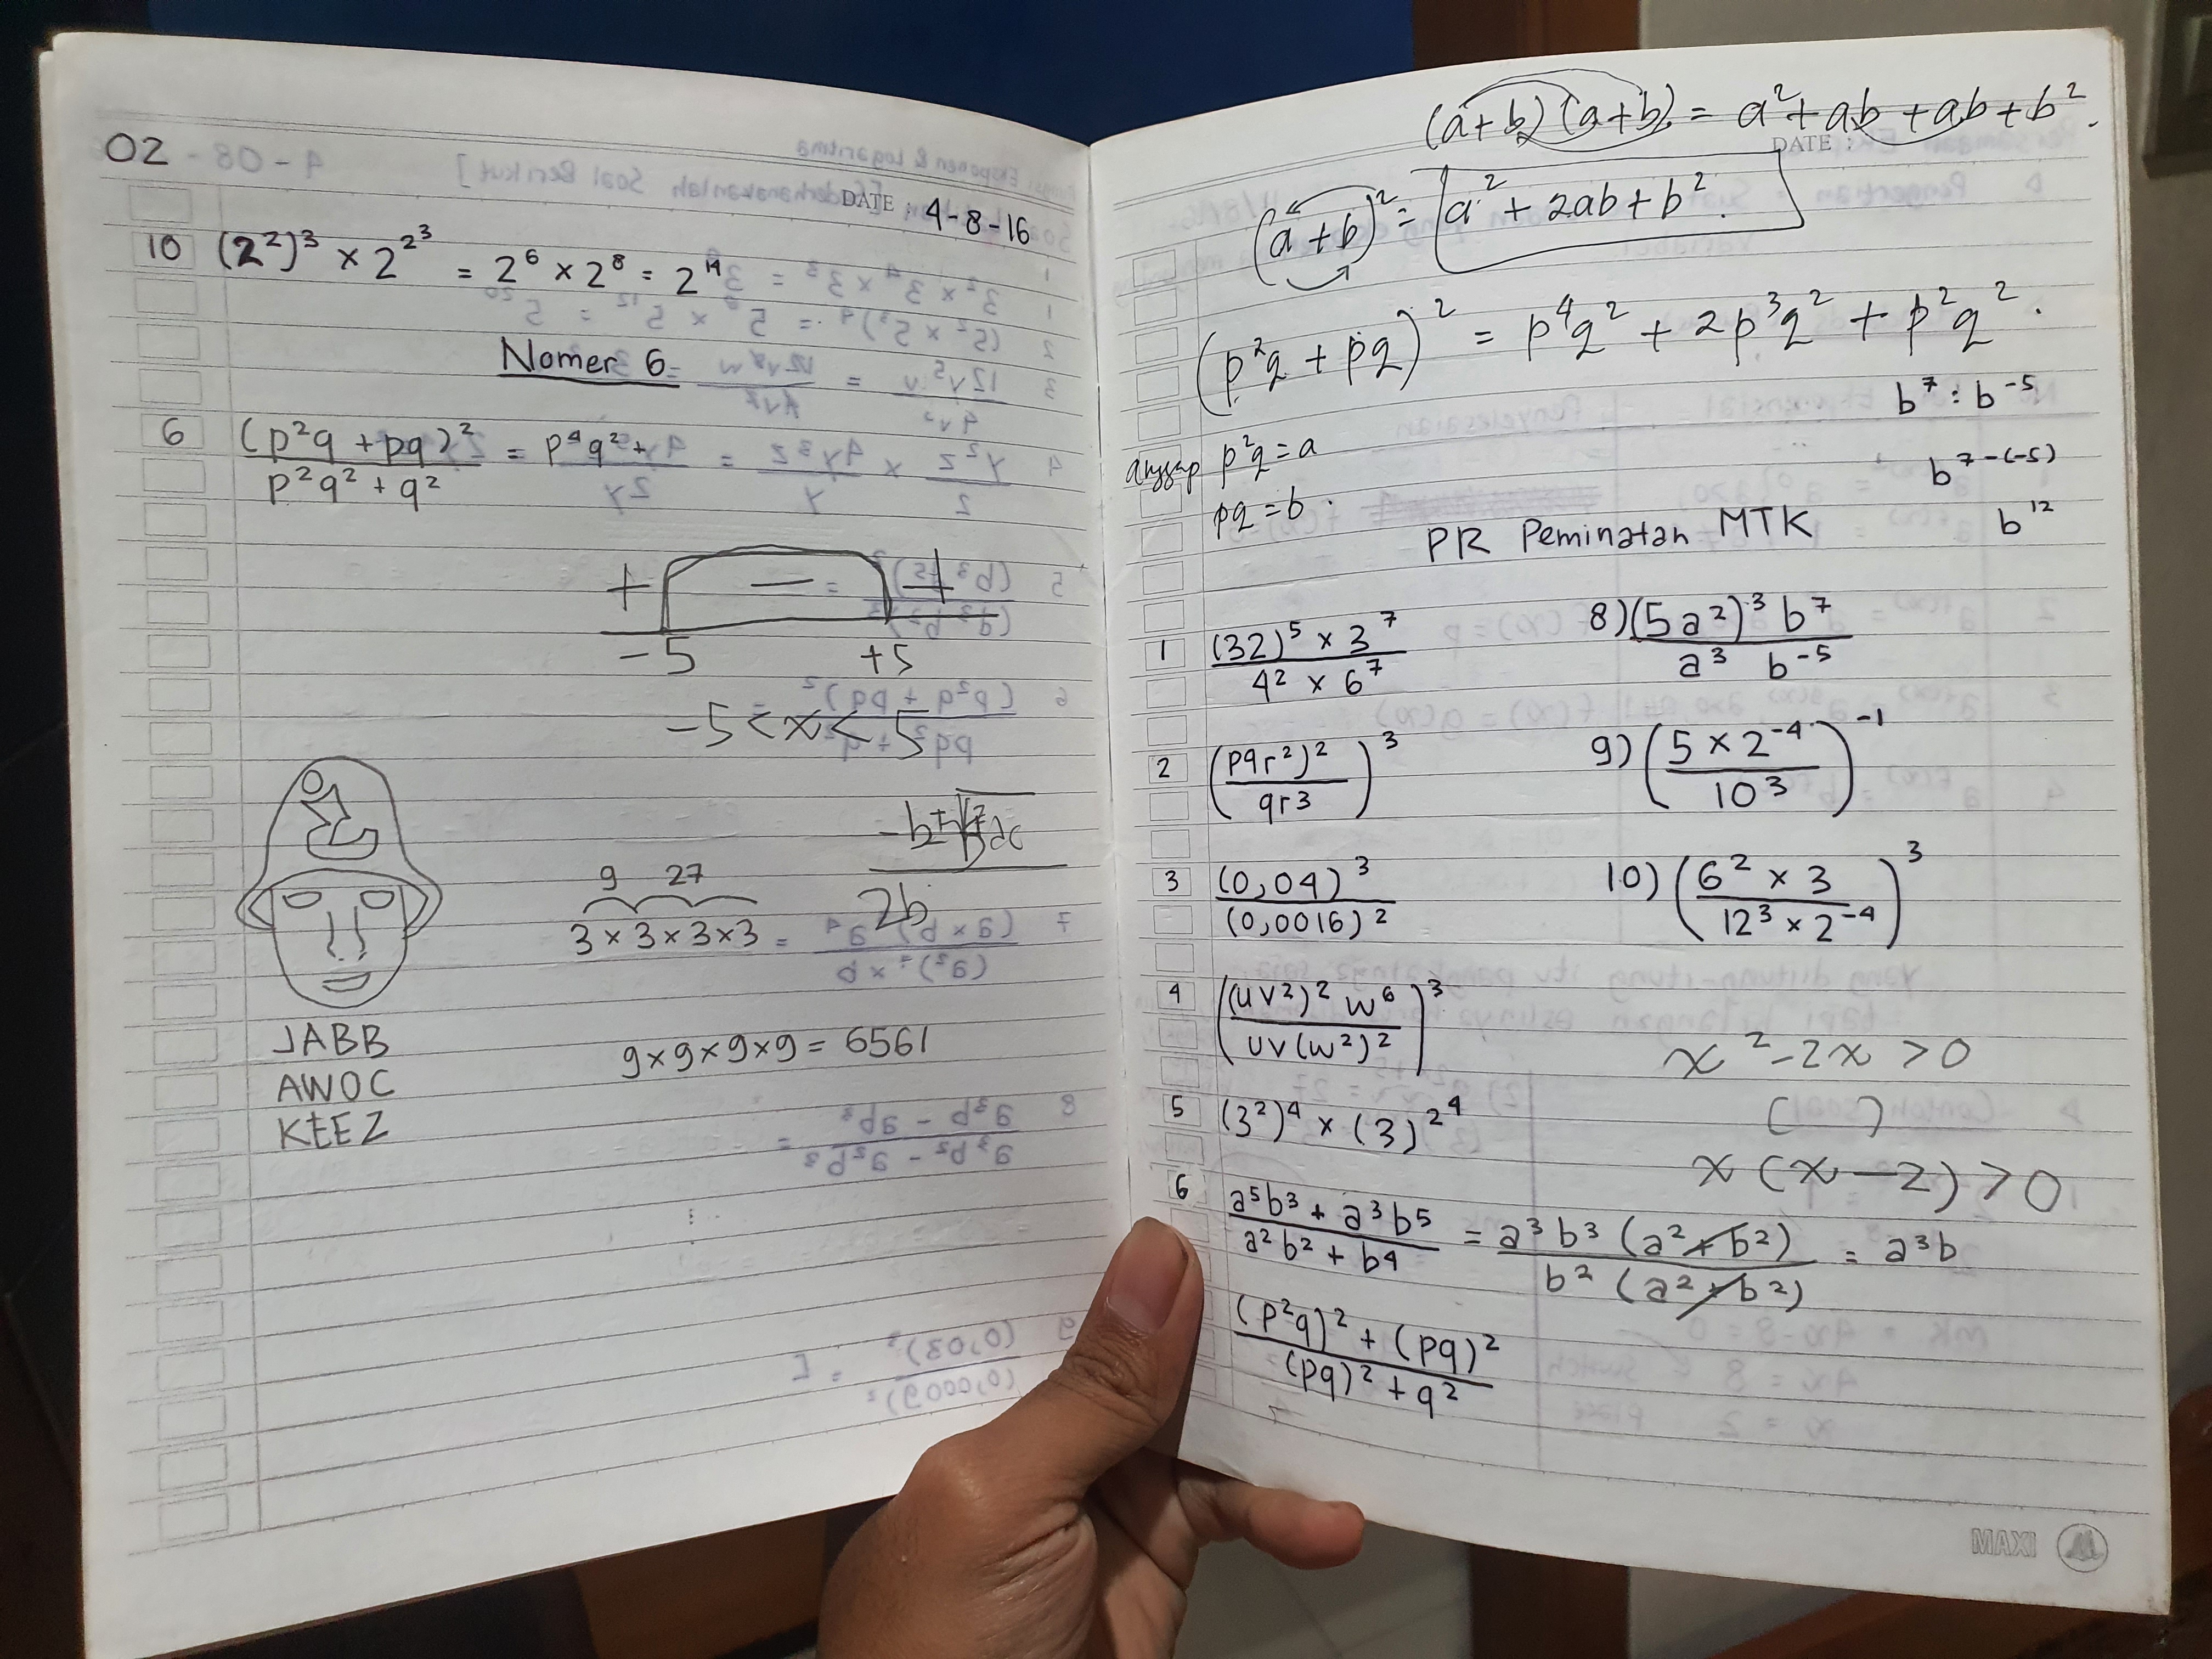 02
DATE : 4-8-16
10 (2²)³ × 2^2^3 = 2⁶ × 2⁸ = 2¹⁴
Nomer 6
6 (p²q + pq)² / p²q² + q² = p⁴q² +
+ − +
−5 +5
−5 < x < 5
2b
9 27
3 × 3 × 3 × 3
JABB
AWOC
KEEZ
9×9×9×9 = 6561
(a+b)(a+b) = a² + ab + ab + b².
DATE :
(a+b)² = a² + 2ab + b².
(p²q + pq)² = p⁴q² + 2p³q² + p²q².
b⁷ : b⁻⁵
anggap p²q = a
b^7-(-5)
pq = b.
b¹²
PR Peminatan MTK
1 (32)⁵ × 3⁷ / 4² × 6⁷
8) (5a²)³ b⁷ / a³ b⁻⁵
2 ((pqr²)² / qr³)³
9) (5 × 2⁻⁴ / 10³)⁻¹
3 (0,04)³ / (0,0016)²
10) (6² × 3 / 12³ × 2⁻⁴)³
4 ((uv²)² w⁶ / uv(w²)²)³
x² − 2x > 0
( )
5 (3²)⁴ × (3)^2^4
x (x − 2) > 0
6 a⁵b³ + a³b⁵ / a²b² + b⁴ = a³b³ (a² + b²) / b² (a² + b²) = a³b
(p²q)² + (pq)² / (pq)² + q²
MAXI